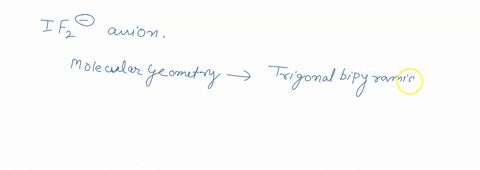 IF₂⁻ anion.
Molecular geometry → Trigonal bipyramid